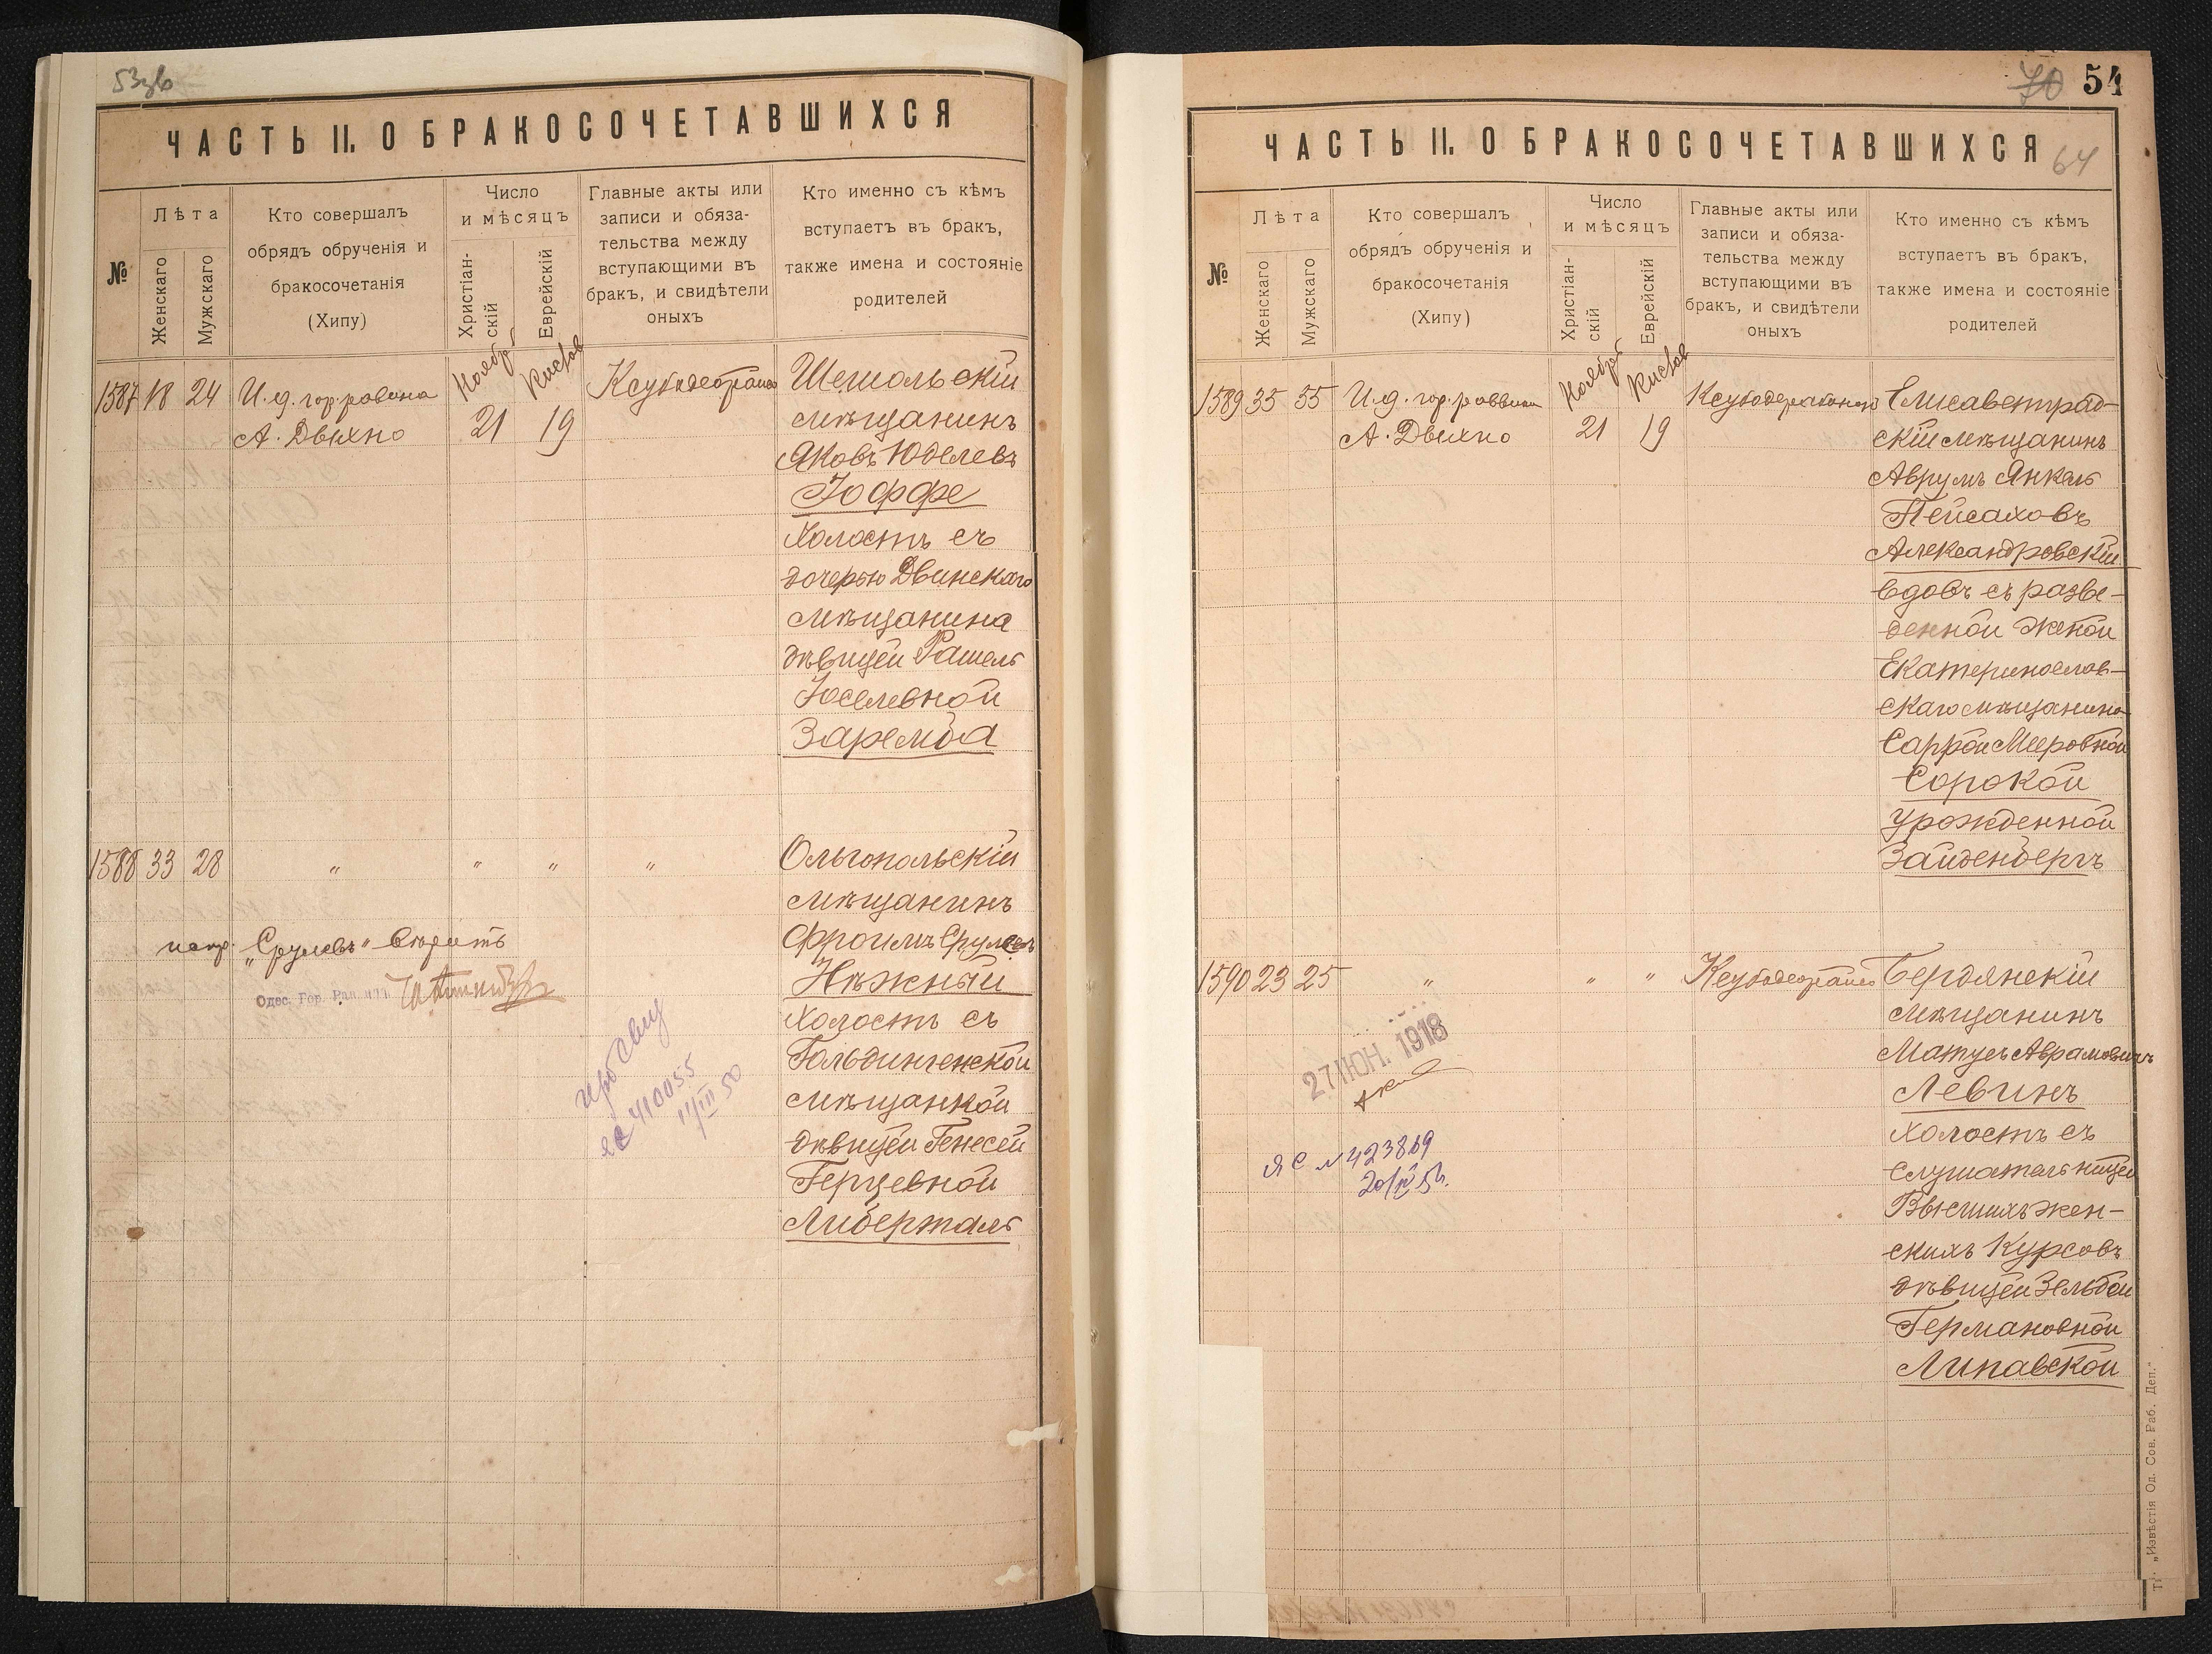 53об
ЧАСТЬ II. О БРАКОСОЧЕТАВШИХСЯ
№
Лѣта
Женскаго
Мужскаго
Кто совершалъ
обрядъ обрученія и
бракосочетанія
(Хипу)
Число
и мѣсяцъ
Христіан-
скій
Еврейскій
Главные акты или
записи и обяза-
тельства между
вступающими въ
бракъ, и свидѣтели
оныхъ
Кто именно съ кѣмъ
вступаетъ въ бракъ,
также имена и состояніе
родителей
1587 18 24 И.д. гор. равина
А. Двихно
Ноября
21
Кислев
19
Шегиольскій
мѣщанинъ
Яковъ Юделевъ
Іоффе
Холостъ съ
дочерью Двинскаго
мѣщанина
дѣвицей Рашель
Іоселевной
Заремба
1588 33 28 " " " "
Ольгопольскій
мѣщанинъ
Фроимъ Срулевъ
Нѣжный
Холостъ съ
Гольдингенской
мѣщанкой
дѣвицей Генесей
Герцевной
Либерталь
испр. „Срулевъ" вѣрить
Одес. Гор. Раввинъ
яс 410055
11/III 50
70 54
ЧАСТЬ II. О БРАКОСОЧЕТАВШИХСЯ
64
№
Лѣта
Женскаго
Мужскаго
Кто совершалъ
обрядъ обрученія и
бракосочетанія
(Хипу)
Число
и мѣсяцъ
Христіан-
скій
Еврейскій
Главные акты или
записи и обяза-
тельства между
вступающими въ
бракъ, и свидѣтели
оныхъ
Кто именно съ кѣмъ
вступаетъ въ бракъ,
также имена и состояніе
родителей
1589 35 55 И.д. гор. раввина
А. Двихно
Ноября
21
Кислев
19
Елисаветград-
скій мѣщанинъ
Аврумъ Янкель
Пейсаховъ
Александровскій
вдовъ съ разве-
денной женой
Екатеринослав-
скаго мѣщанина
Саррой Мееровной
Сорокой
урожденной
Зайденбергъ
1590 23 25 " " "
Бердянскій
мѣщанинъ
Матусъ Абрамовичъ
Левинъ
холостъ съ
слушательницей
Высшихъ Жен-
скихъ Курсовъ
дѣвицей Зельдой
Германовной
Липавской
27 ІЮН. 1918
яс № 423869
Тип. „Извѣстія Од. Сов. Раб. Деп."